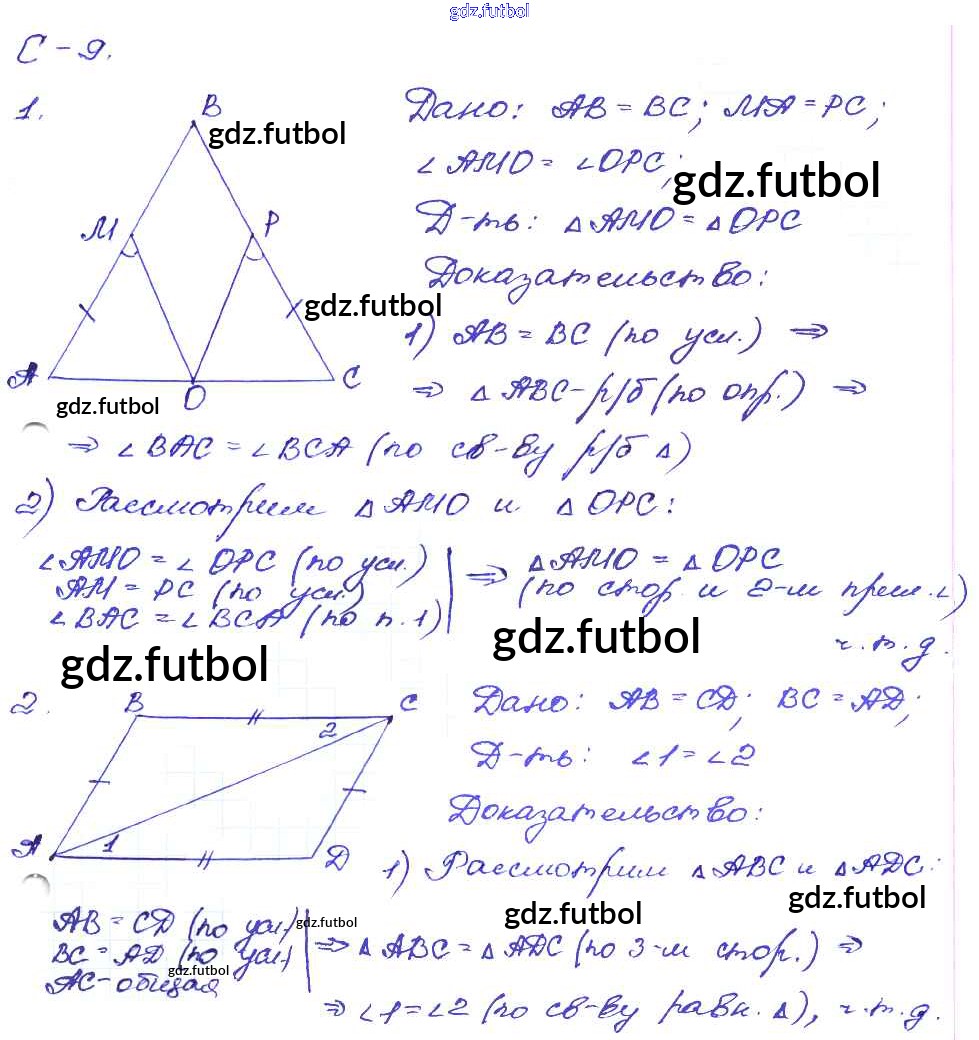 gdz.futbol
С-9.
1.
B
gdz.futbol
M
P
gdz.futbol
A
O
C
gdz.futbol
Дано: AB = BC; MA = PC;
∠AMO = ∠OPC;
gdz.futbol
Д-ть: △AMO = △OPC
Доказательство:
1) AB = BC (по усл.) ⇒
⇒ △ABC - р/б (по опр.) ⇒
⇒ ∠BAC = ∠BCA (по св-ву р/б △)
2) Рассмотрим △AMO и △OPC:
∠AMO = ∠OPC (по усл.)
AM = PC (по усл.)
∠BAC = ∠BCA (по п.1)
⇒ △AMO = △OPC
(по стор. и 2-м прил. ∠)
ч.т.д.
gdz.futbol
gdz.futbol
2.
B
C
2
A
1
D
Дано: AB = CD; BC = AD;
Д-ть: ∠1 = ∠2
Доказательство:
1) Рассмотрим △ABC и △ADC:
gdz.futbol
gdz.futbol
gdz.futbol
AB = CD (по усл)
BC = AD (по усл)
gdz.futbol
AC - общая
⇒ △ABC = △ADC (по 3-м стор.) ⇒
⇒ ∠1 = ∠2 (по св-ву равн. △), ч.т.д.